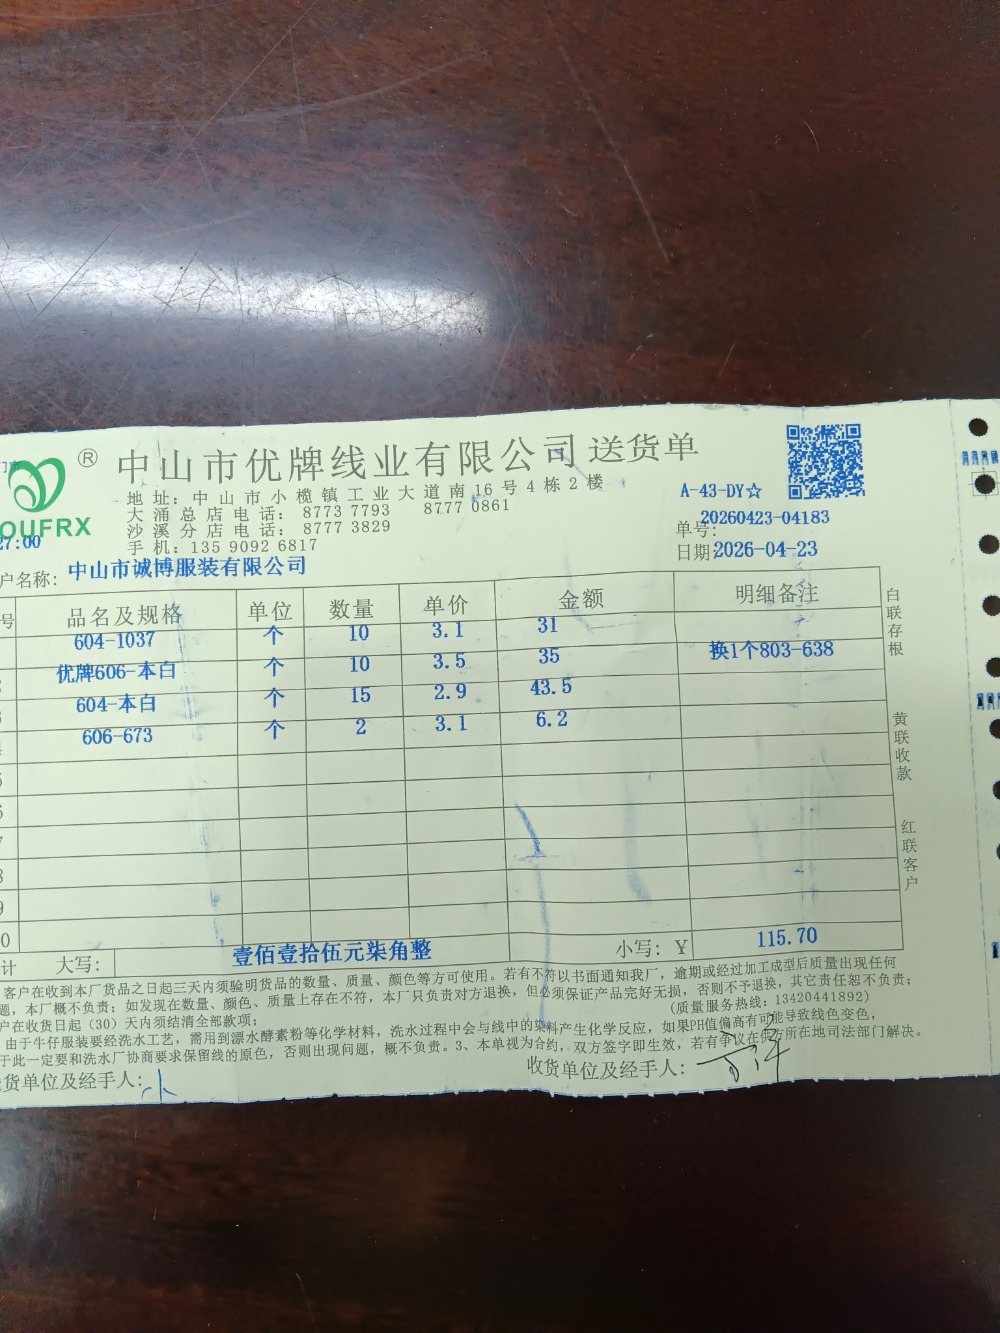 ® 中山市优牌线业有限公司 送货单
OUFRX
地址：中山市小榄镇工业大道南16号4栋2楼
大涌总店电话： 8773 7793 8777 0861
沙溪分店电话： 8777 3829
手机：135 9092 6817
A-43-DY☆
单号：20260423-04183
日期：2026-04-23
27:00
户名称：中山市诚博服装有限公司
号 品名及规格 单位 数量 单价 金额 明细备注
604-1037 个 10 3.1 31
优牌606-本白 个 10 3.5 35 换1个803-638
604-本白 个 15 2.9 43.5
606-673 个 2 3.1 6.2
计 大写： 壹佰壹拾伍元柒角整 小写：Y 115.70
白联存根
黄联收款
红联客户
客户在收到本厂货品之日起三天内须验明货品的数量、质量、颜色等方可使用。若有不符以书面通知我厂，逾期或经过加工成型后质量出现任何
题，本厂概不负责；如发现在数量、颜色、质量上存在不符，本厂只负责对方退换，但必须保证产品完好无损，否则不予退换，其它责任恕不负责；
户在收货日起（30）天内须结清全部款项； (质量服务热线：13420441892)
由于牛仔服装要经洗水工艺，需用到漂水酵素粉等化学材料，洗水过程中会与线中的染料产生化学反应，如果PH值偏高有可能导致线色变色，
于此一定要和洗水厂协商要求保留线的原色，否则出现问题，概不负责。3、本单视为合约，双方签字即生效，若有争议在供方所在地司法部门解决。
货单位及经手人： 收货单位及经手人：